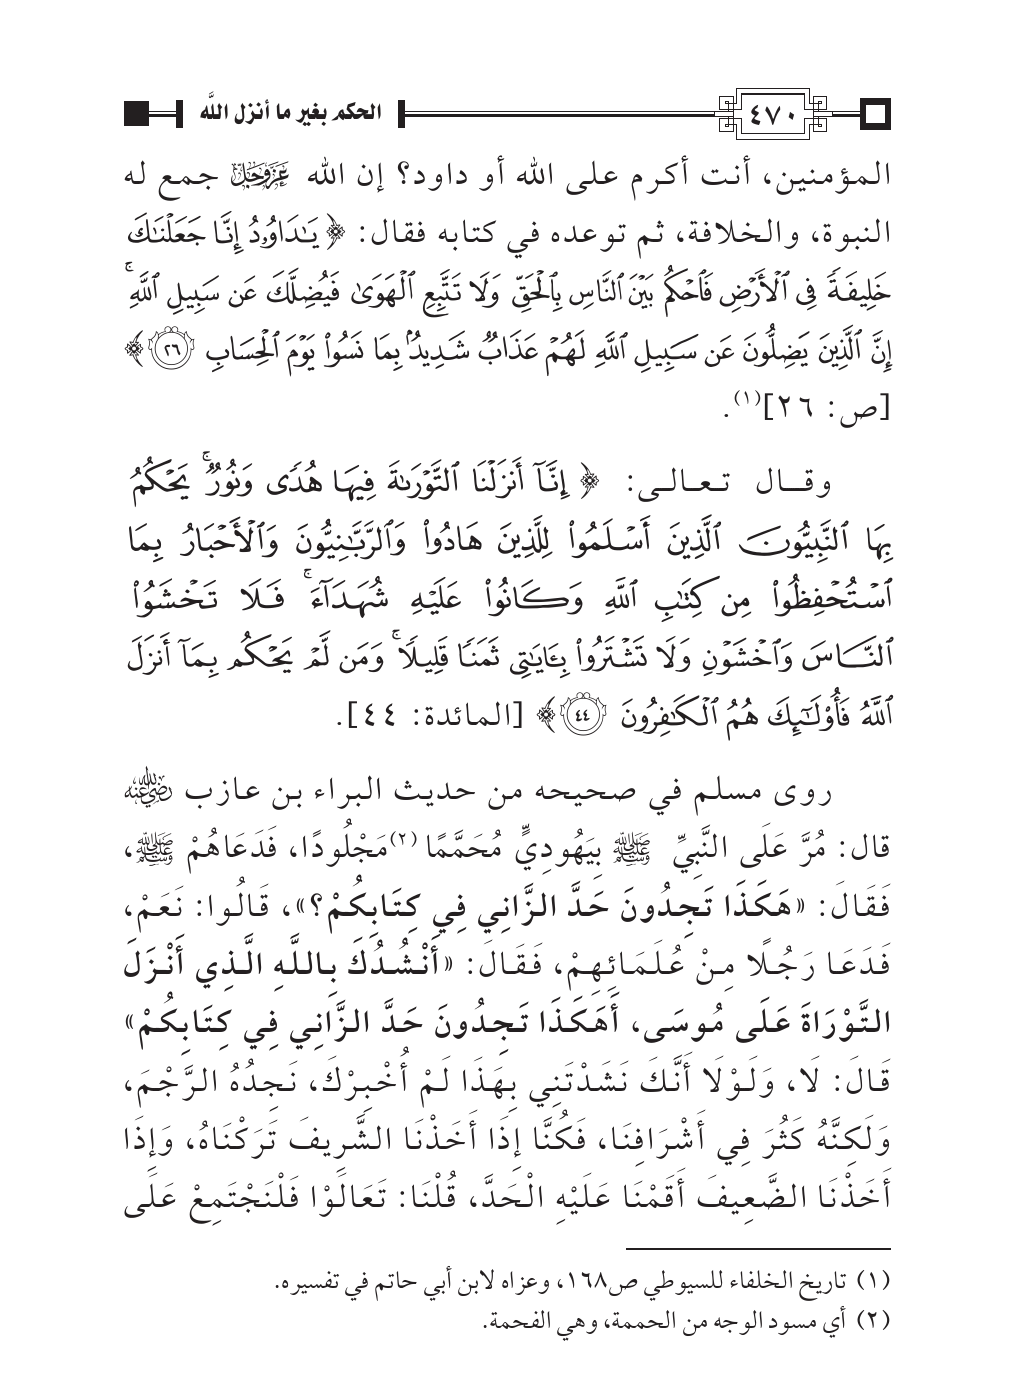 ٤٧٠ الحكم بغير ما أنزل الله
المؤمنين، أنت أكرم على الله أو داود؟ إن الله عَزَّوَجَلَّ جمع له
النبوة، والخلافة، ثم توعده في كتابه فقال: ﴿ يَٰدَاوُۥدُ إِنَّا جَعَلْنَٰكَ
خَلِيفَةً فِى ٱلْأَرْضِ فَٱحْكُم بَيْنَ ٱلنَّاسِ بِٱلْحَقِّ وَلَا تَتَّبِعِ ٱلْهَوَىٰ فَيُضِلَّكَ عَن سَبِيلِ ٱللَّهِ ۚ
إِنَّ ٱلَّذِينَ يَضِلُّونَ عَن سَبِيلِ ٱللَّهِ لَهُمْ عَذَابٌ شَدِيدٌۢ بِمَا نَسُوا۟ يَوْمَ ٱلْحِسَابِ ٢٦ ﴾
[ص: ٢٦](١).
وقال تعالى: ﴿ إِنَّآ أَنزَلْنَا ٱلتَّوْرَىٰةَ فِيهَا هُدًى وَنُورٌ ۚ يَحْكُمُ
بِهَا ٱلنَّبِيُّونَ ٱلَّذِينَ أَسْلَمُوا۟ لِلَّذِينَ هَادُوا۟ وَٱلرَّبَّٰنِيُّونَ وَٱلْأَحْبَارُ بِمَا
ٱسْتُحْفِظُوا۟ مِن كِتَٰبِ ٱللَّهِ وَكَانُوا۟ عَلَيْهِ شُهَدَآءَ ۚ فَلَا تَخْشَوُا۟
ٱلنَّاسَ وَٱخْشَوْنِ وَلَا تَشْتَرُوا۟ بِـَٔايَٰتِى ثَمَنًا قَلِيلًا ۚ وَمَن لَّمْ يَحْكُم بِمَآ أَنزَلَ
ٱللَّهُ فَأُو۟لَٰٓئِكَ هُمُ ٱلْكَٰفِرُونَ ٤٤ ﴾ [المائدة: ٤٤].
روى مسلم في صحيحه من حديث البراء بن عازب رضي الله عنه
قال: مُرَّ عَلَى النَّبِيِّ ﷺ بِيَهُودِيٍّ مُحَمَّمًا(٢) مَجْلُودًا، فَدَعَاهُمْ ﷺ،
فَقَالَ: «هَكَذَا تَجِدُونَ حَدَّ الزَّانِي فِي كِتَابِكُمْ؟»، قَالُوا: نَعَمْ،
فَدَعَا رَجُلًا مِنْ عُلَمَائِهِمْ، فَقَالَ: «أَنْشُدُكَ بِاللَّهِ الَّذِي أَنْزَلَ
التَّوْرَاةَ عَلَى مُوسَى، أَهَكَذَا تَجِدُونَ حَدَّ الزَّانِي فِي كِتَابِكُمْ»
قَالَ: لَا، وَلَوْلَا أَنَّكَ نَشَدْتَنِي بِهَذَا لَمْ أُخْبِرْكَ، نَجِدُهُ الرَّجْمَ،
وَلَكِنَّهُ كَثُرَ فِي أَشْرَافِنَا، فَكُنَّا إِذَا أَخَذْنَا الشَّرِيفَ تَرَكْنَاهُ، وَإِذَا
أَخَذْنَا الضَّعِيفَ أَقَمْنَا عَلَيْهِ الْحَدَّ، قُلْنَا: تَعَالَوْا فَلْنَجْتَمِعْ عَلَى
(١) تاريخ الخلفاء للسيوطي ص١٦٨، وعزاه لابن أبي حاتم في تفسيره.
(٢) أي مسود الوجه من الحممة، وهي الفحمة.